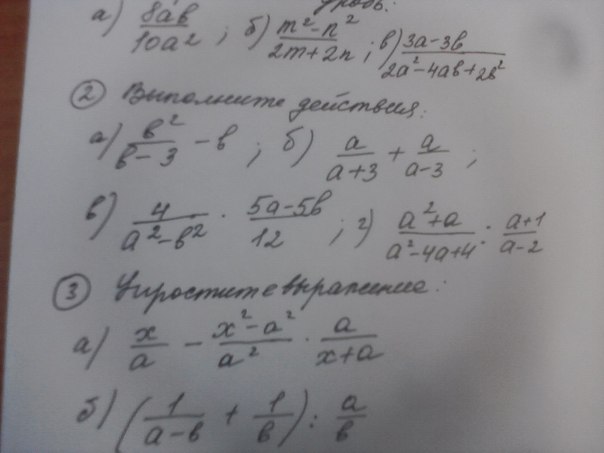 дробь:
а) 8ab/10a²; б) m²-n²/2m+2n; в) 3a-3b/2a²-4ab+2b²
② Выполните действия:
а) b²/b-3 - b; б) a/a+3 + a/a-3;
в) 4/a²-b² · 5a-5b/12; г) a²+a/a²-4a+4 : a+1/a-2
③ Упростите выражение:
а) x/a - x²-a²/a² · a/x+a
б) (1/a-b + 1/b) : a/b